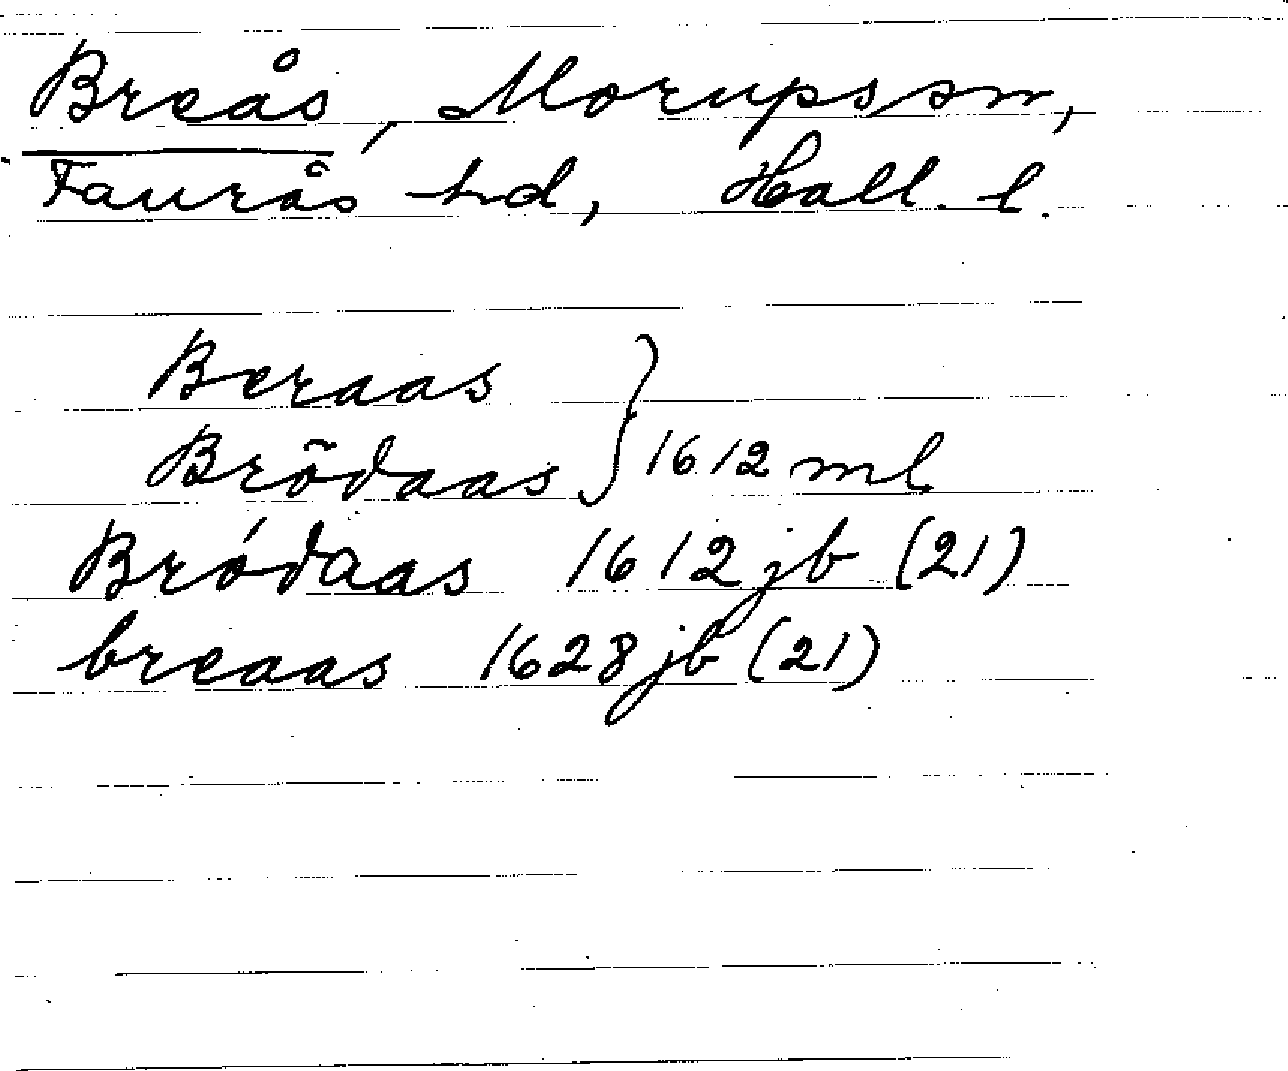 Breås, Morups sn,
Faurås hd, Hall. l.
Beraas
Brõdaas } 1612 ml
Bródaas 1612 jb (21)
breaas 1628 jb (21)